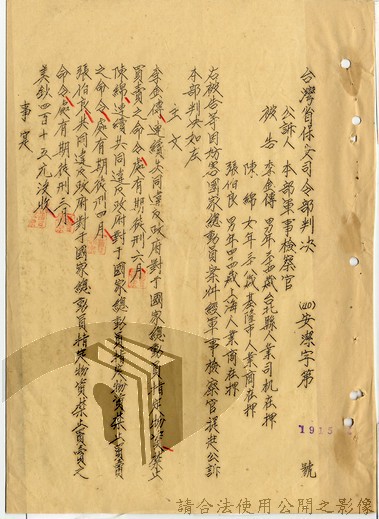 台灣省保安司令部判决
(40)安潔字第1915號
公訴人 本部軍事檢察官
被告 李金傳 男年 歲台北縣人業司机在押
陳綿 女年 歲基隆市人業商在押
張伯良 男年四四歲上海人業商在押
右被告等因妨害國家總動員案件經軍事檢察官提起公訴
本部判决如左
主文
李金傳連續共同違反政府對于國家總動員指定物資禁止
買賣之命令處有期徒刑六月
陳綿連續共同違反政府對于國家總動員指定物資禁止買賣
之命令處有期徒刑四月
張伯良共同違反政府對于國家總動員指定物資禁止買賣之
命令處有期徒刑三月
美鈔四百十五元沒收
事實
請合法使用公開之影像